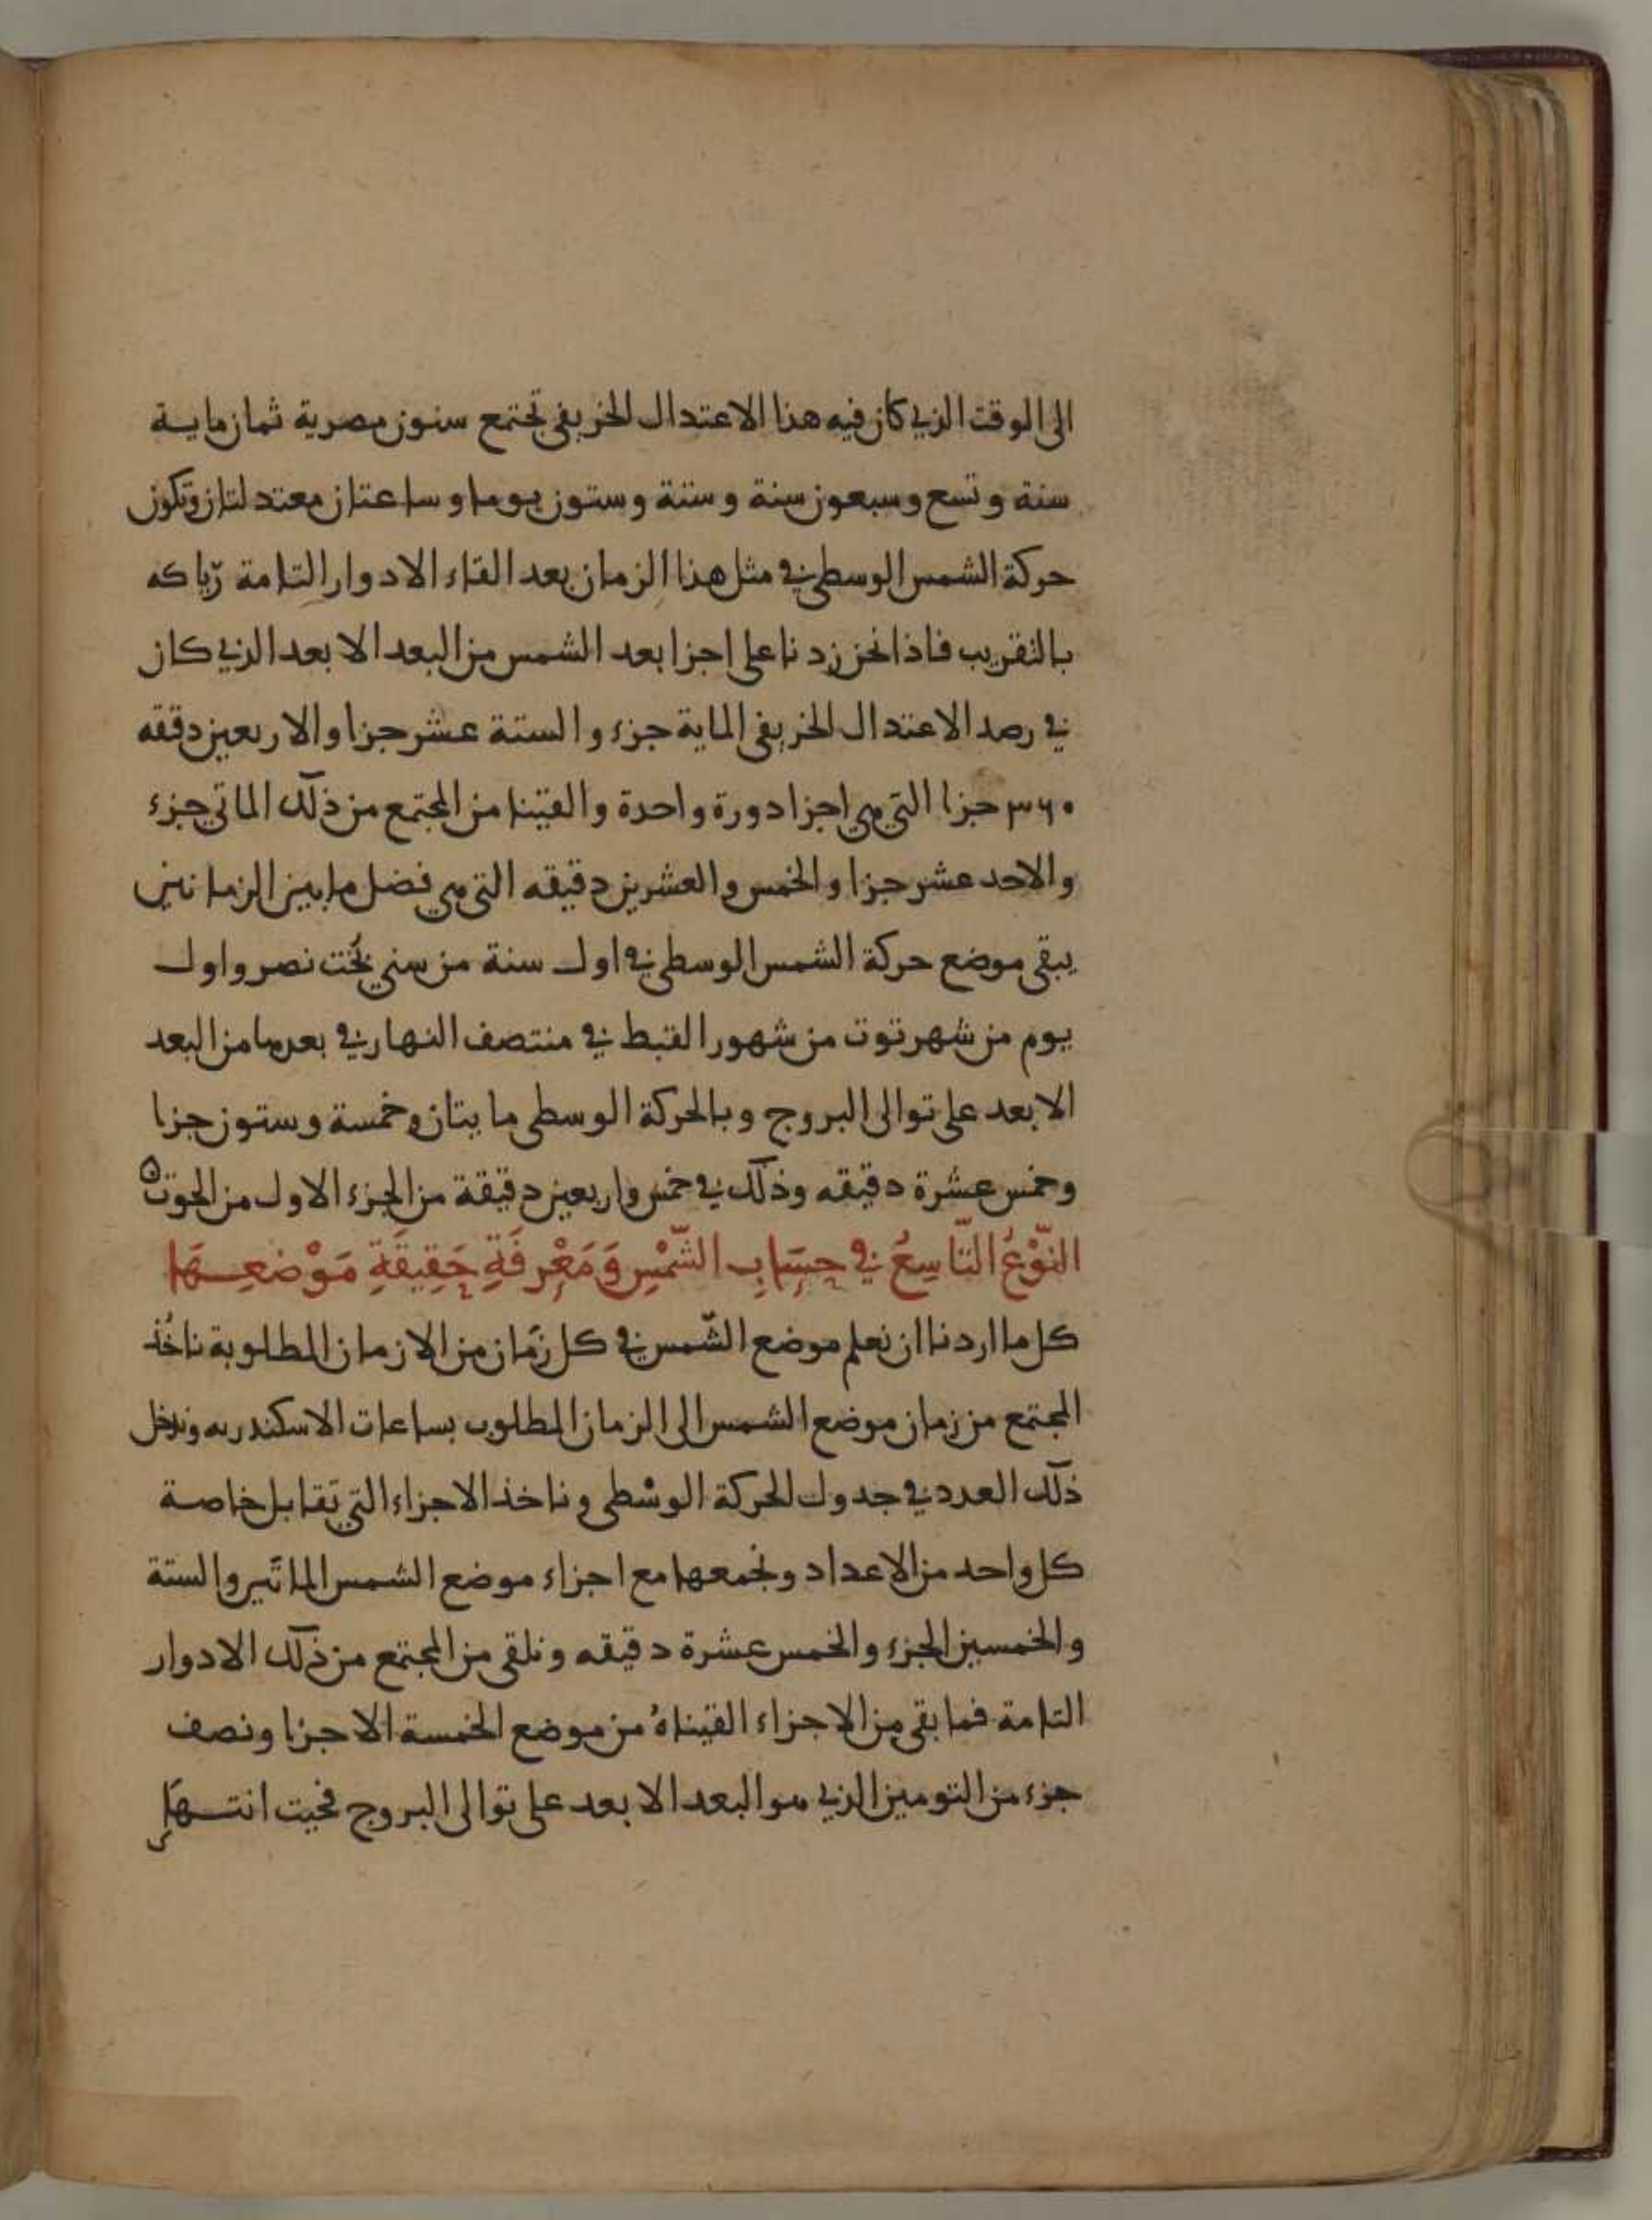 الى الوقت الذي كان فيه هذا الاعتدال الخريفي تجتمع سنون مصرية ثمان ماية
سنة وتسع وسبعون سنة وستة وستون يوما وساعتان معتدلتان وتكون
حركة الشمس الوسطى في مثل هذا الزمان بعد القاء الادوار التامة ريا كه
بالتقريب فاذا نحن زدنا على اجزا بعد الشمس من البعد الابعد الذي كان
في رصد الاعتدال الخريفي الماية جزء والستة عشر جزا والاربعين دققه
٣٦٠ جزا التي هي اجزا دورة واحدة والقينا من المجتمع من ذلك الماتي جزء
والاحد عشر جزا والخمس والعشرين دقيقه التي هي فضل ما بين الزمانين
يبقى موضع حركة الشمس الوسطى في اول سنة من سني بخت نصر واول
يوم من شهر توت من شهور القبط في منتصف النهار في بعدها من البعد
الابعد على توالى البروج وبالحركة الوسطى مايتان وخمسة وستون جزا
وخمس عشرة دقيقه وذلك في خمس واربعين دقيقة من الجزء الاول من الحوت
النَّوْعُ التَّاسِعُ في حِسَابِ الشَّمْسِ وَمَعْرِفَةِ حَقِيقَةِ مَوْضِعِهَا
كل ما اردنا ان نعلم موضع الشمس في كل زمان من الازمان المطلوبة ناخذ
المجتمع من زمان موضع الشمس الى الزمان المطلوب بساعات الاسكندريه وندخل
ذلك العدد في جدول الحركة الوسطى وناخذ الاجزاء التي تقابل خاصة
كل واحد من الاعداد ونجمعها مع اجزاء موضع الشمس الماتين والستة
والخمسين الجزء والخمس عشرة دقيقه ونلقى من المجتمع من ذلك الادوار
التامة فما بقى من الاجزاء القيناهُ من موضع الخمسة الاجزا ونصف
جزء من التومين الذي هو البعد الابعد على توالى البروج فحيت انتهى